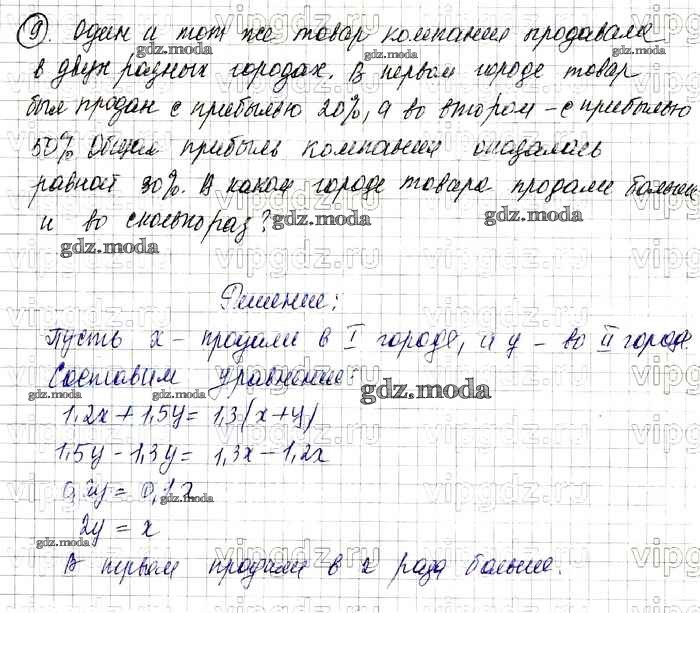 9. Один и тот же товар компания продавала
в двух разных городах. В первом городе товар
был продан с прибылью 20%, а во втором – с прибылью
50%. Общая прибыль компании оказалась
равной 30%. В каком городе товара продали больше
и во сколько раз?
Решение:
Пусть x - продали в I городе, и y - во II городе
Составим уравнение:
1,2x + 1,5y = 1,3(x+y)
1,5y - 1,3y = 1,3x - 1,2x
0,2y = 0,1x
2y = x
В первом продали в 2 раза больше.
gdz.moda
vipgdz.ru